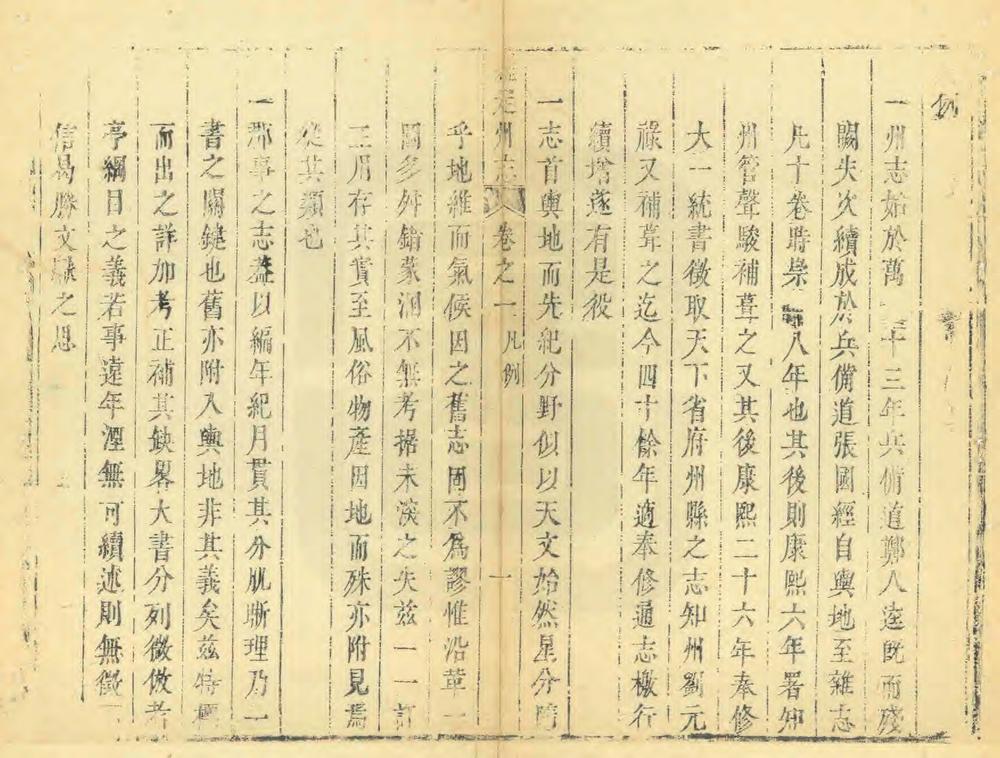 一州志始於萬 三十三年兵備道鄭人逵既而殘
闕失次續成於兵備道張國經自輿地至雜志
凡十卷時崇 八年也其後則康熙六年署知
州管聲駿補葺之又其後康熙二十六年奉修
大一統書徵取天下省府州縣之志知州劉元
祿又補葺之迄今四十餘年適奉修通志檄行
續增遂有是役
一志首輿地而先紀分野似以天文始然星分
州志 卷之一 凡例 一
乎地維而氣候因之舊志固不為謬惟沿革一
圖多舛錯蒙 不無考據未 之失茲一一訂
正用存其實至風俗物產因地而殊亦附見焉
從其類也
一郡事之志蓋以編年紀月貫其分肌晰理乃一
書之關鍵也舊亦附入輿地非其義矣茲特
而出之詳加考正補其缺畧大書分列微倣考
亭綱目之義若事遠年湮無可續述則無徵
信曷勝文獻之思